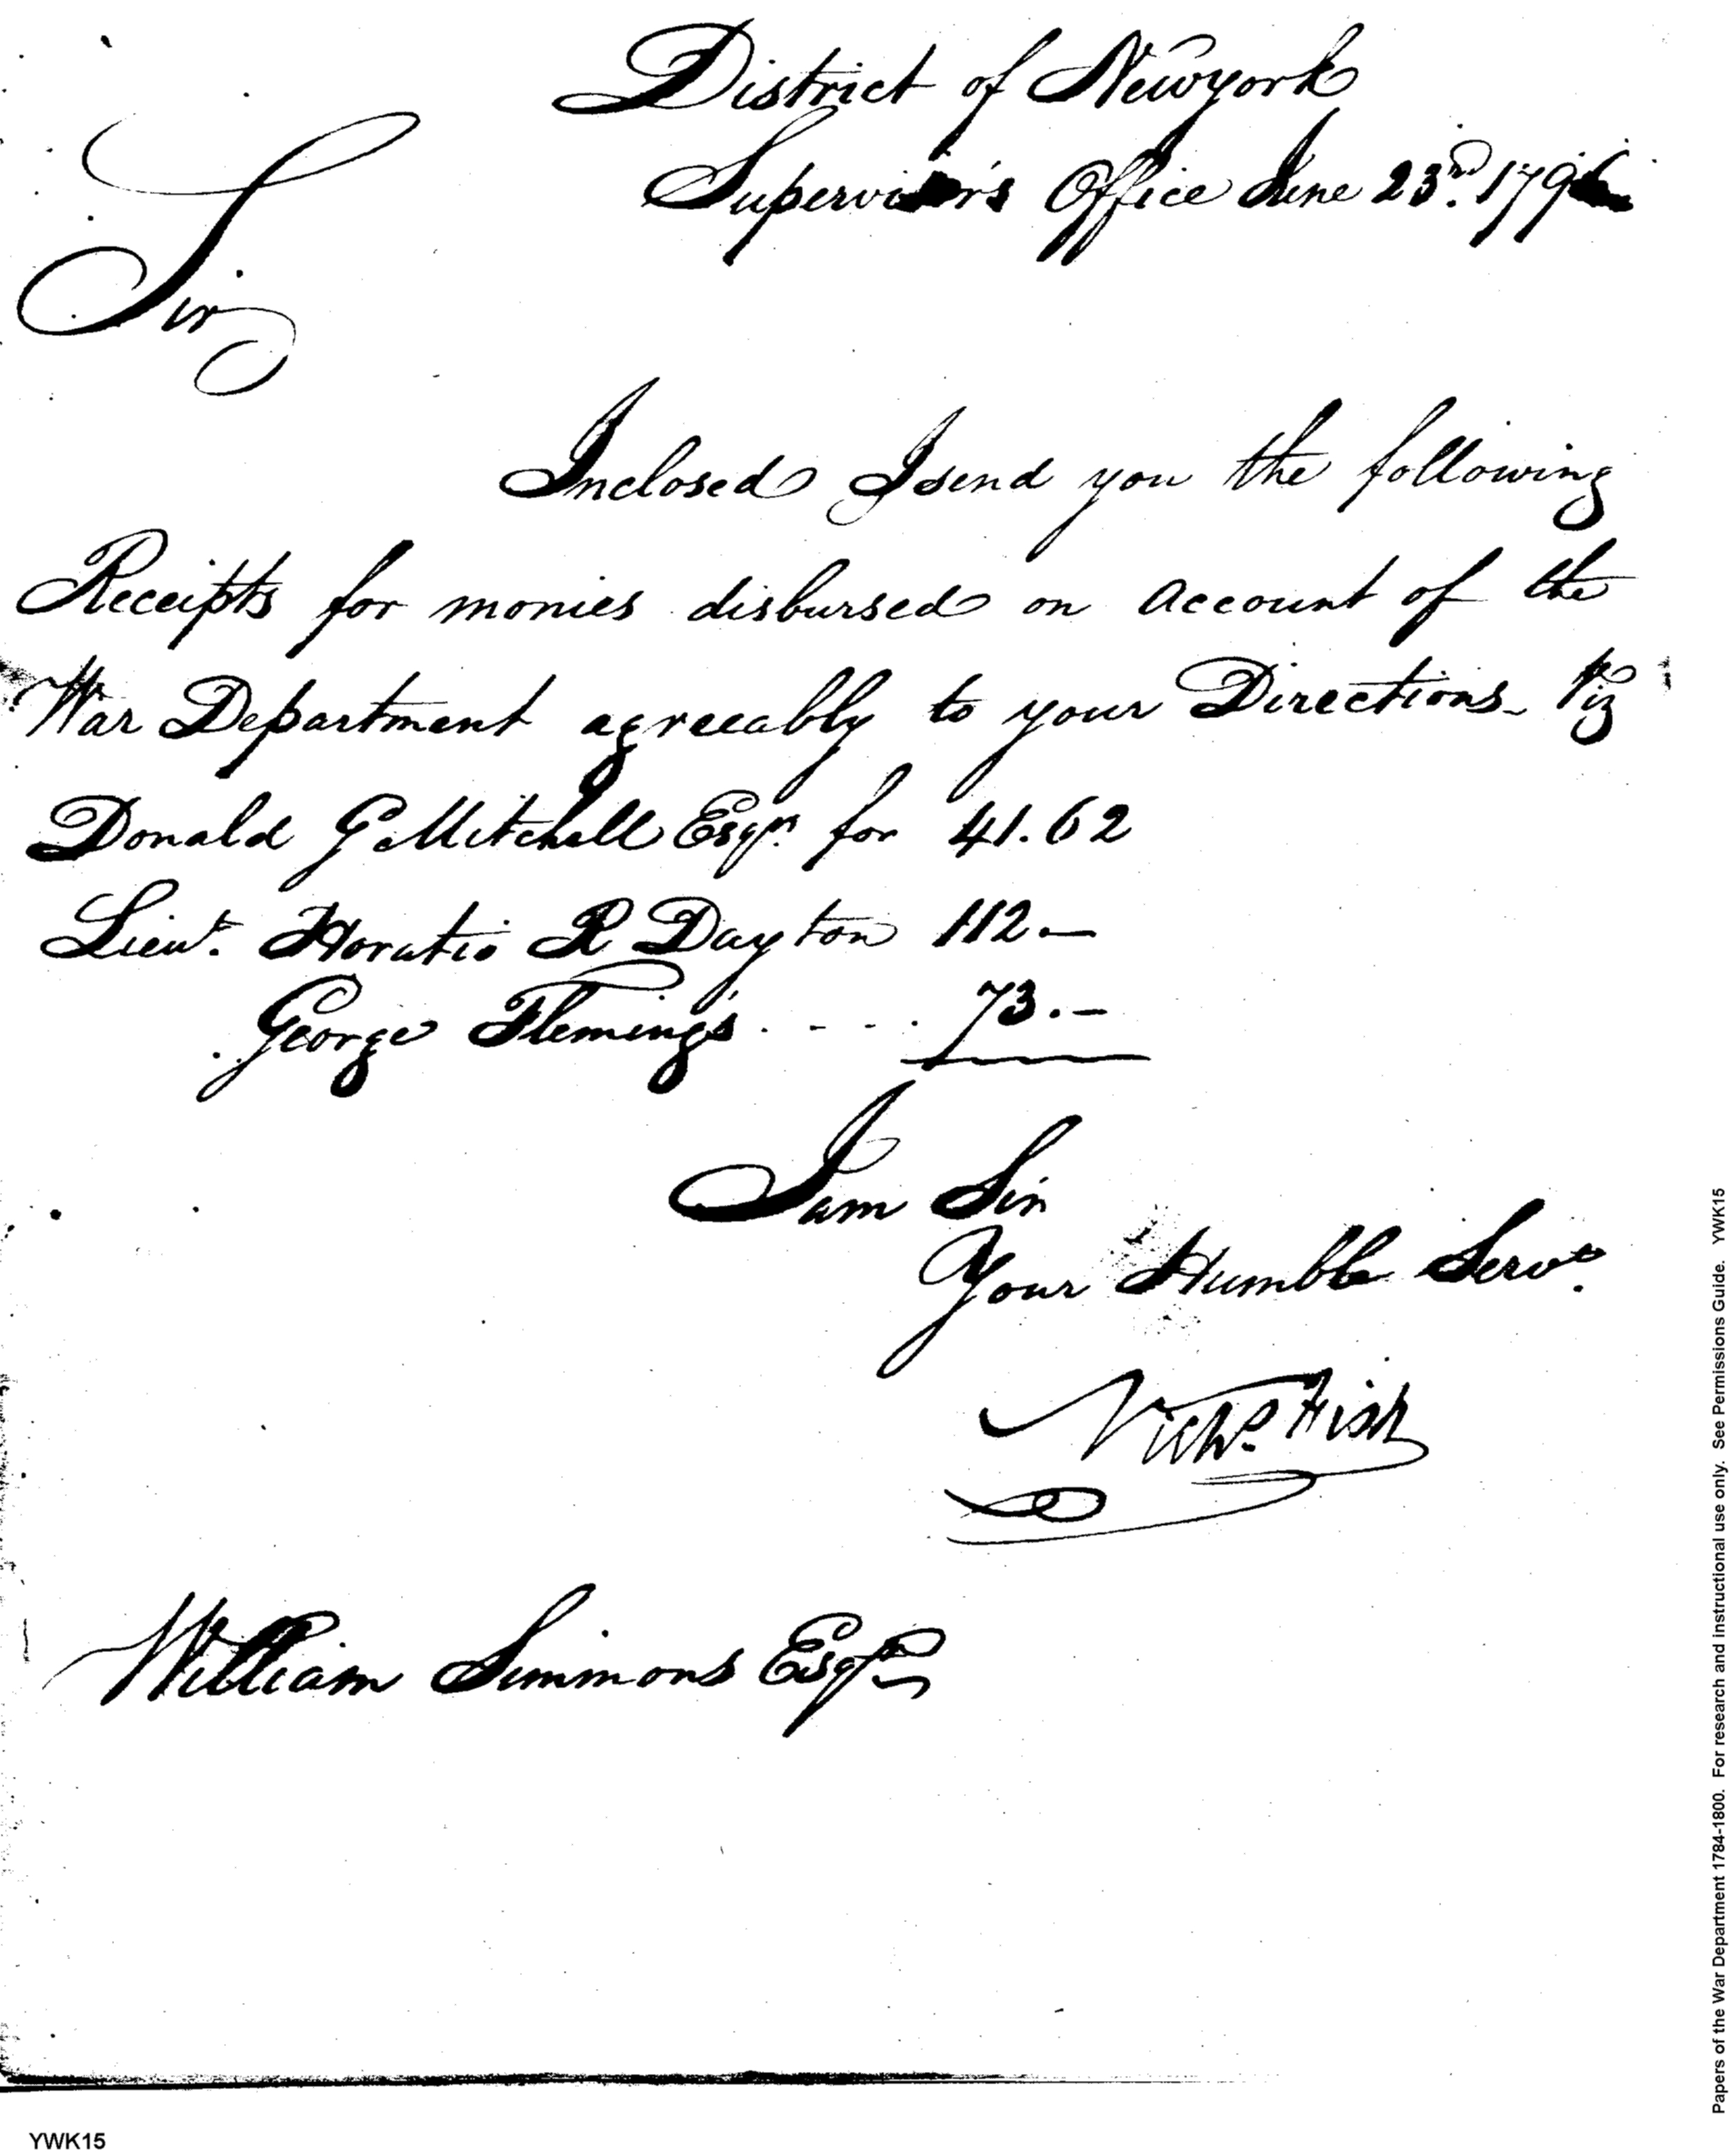 District of Newyork
Supervisor's Office June 23.rd 1796
Sir
Inclosed I send you the following
Receipts for monies disbursed on account of the
War Department agreeably to your Directions - Viz
Donald G Mitchell Esqr. for 41.62
Lieut. Horatio R Dayton 112.—
George Fleming's . - - . 73.—
I am Sir
Your Humble Servt.
Nichs. Fish
William Simmons Esqr
Papers of the War Department 1784-1800. For research and instructional use only. See Permissions Guide. YWK15
YWK15